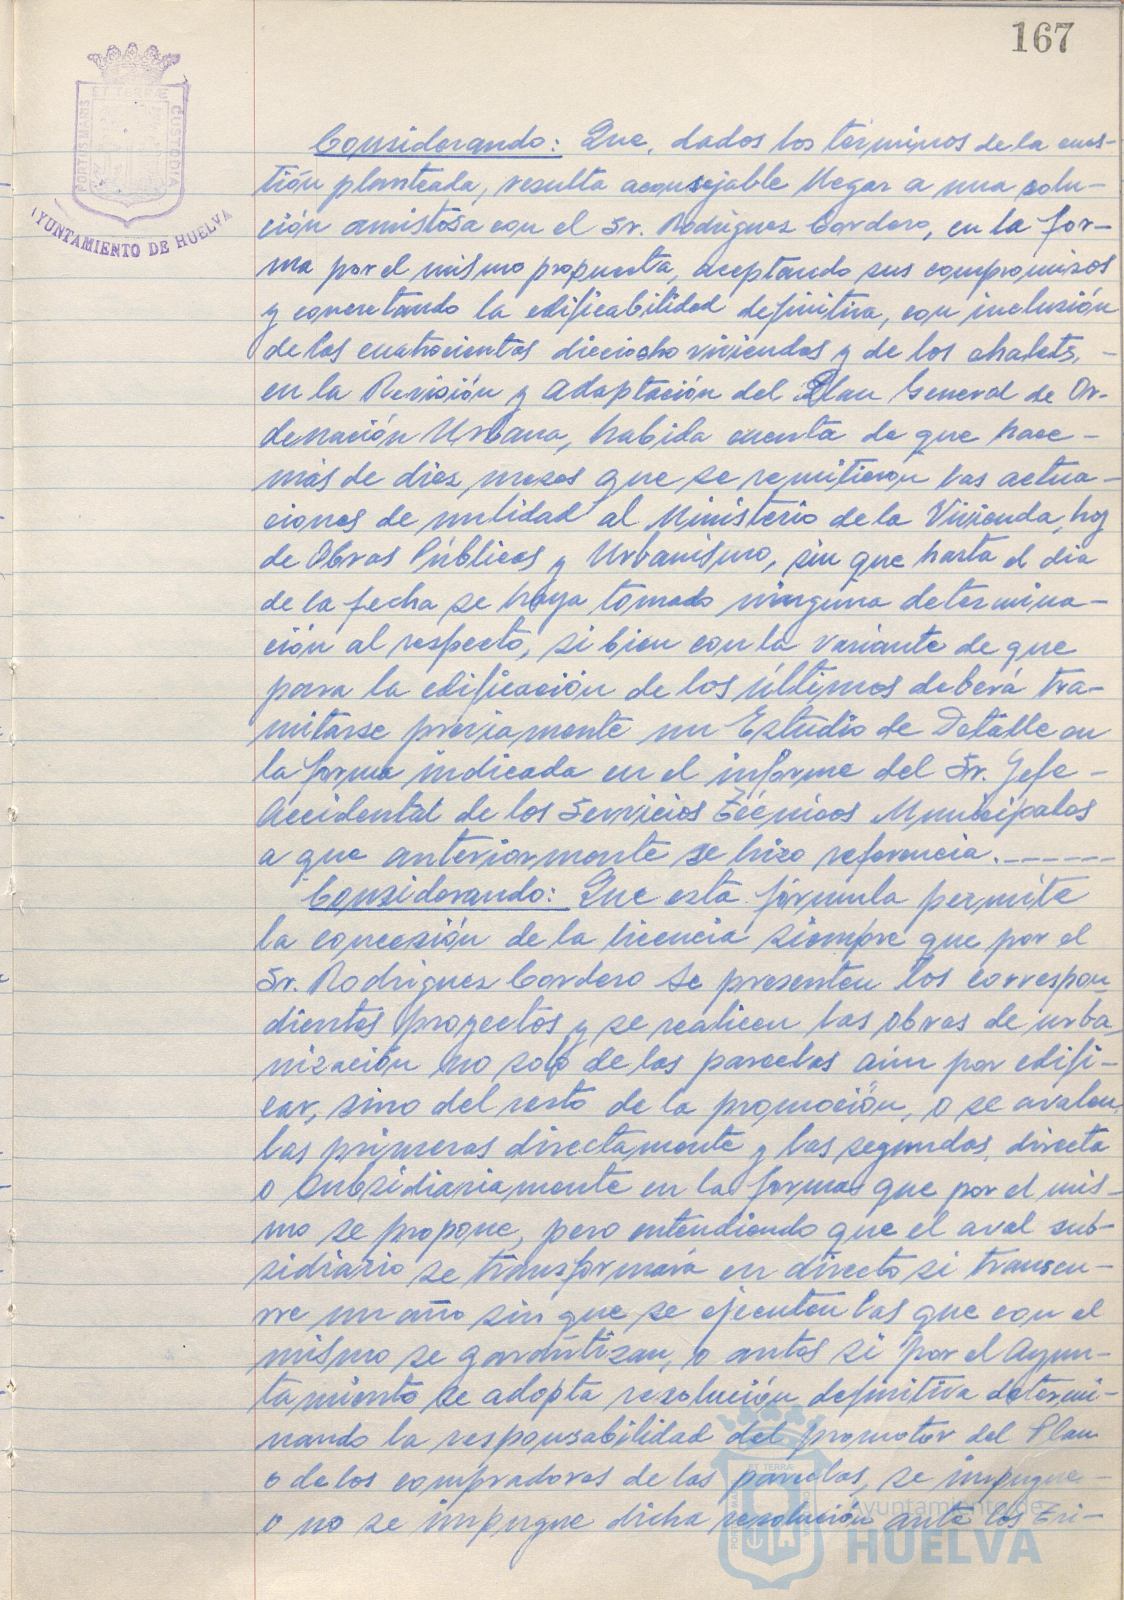 167
PORTUS MARIS ET TERRÆ CUSTODIA
AYUNTAMIENTO DE HUELVA
Considerando: Que, dados los términos de la cues-
tión planteada, resulta aconsejable llegar a una solu-
ción amistosa con el Sr. Rodríguez Cordero, en la for-
ma por el mismo propuesta, aceptando sus compromisos
y concretando la edificabilidad definitiva, con inclusión
de las cuatrocientas dieciocho viviendas y de los chalets, -
en la Revisión y adaptación del Plan General de Or-
denación Urbana, habida cuenta de que hace -
más de diez meses que se remitieron las actua-
ciones de nulidad al Ministerio de la Vivienda, hoy
de Obras Públicas y Urbanismo, sin que hasta el día
de la fecha se haya tomado ninguna determina-
ción al respecto, si bien con la variante de que
para la edificación de los últimos deberá tra-
mitarse previamente un Estudio de Detalle en
la forma indicada en el informe del Sr. Jefe -
Accidental de los Servicios Técnicos Municipales
a que anteriormente se hizo referencia.------
Considerando: Que esta fórmula permite
la concesión de la licencia siempre que por el
Sr. Rodríguez Cordero se presenten los correspon
dientes proyectos y se realicen las obras de urba
nización no solo de las parcelas aún por edifi-
car, sino del resto de la promoción, o se avalen,
las primeras directamente y las segundas, directa
o subsidiariamente en la formas que por el mis-
mo se propone, pero entendiendo que el aval sub-
sidiario se transformará en directo si transcu-
rre un año sin que se ejecuten las que con el
mismo se garantizan, o antes si por el Ayun-
tamiento se adopta resolución definitiva determi-
nando la responsabilidad del promotor del Plan
o de los compradores de las parcelas, se impugne -
o no se impugne dicha resolución ante los Tri-
Ayuntamiento de
HUELVA